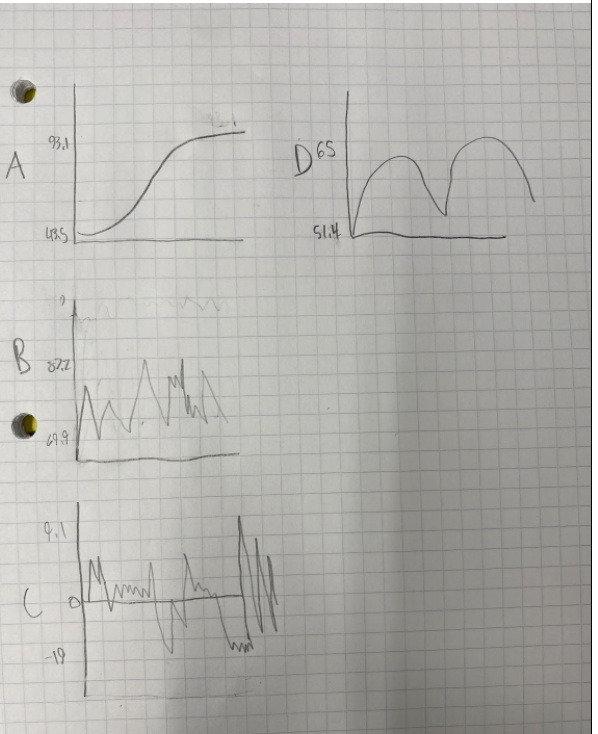 A
93.1
D
65
51.4
B
87.2
69.9
C
9.1
0
-19